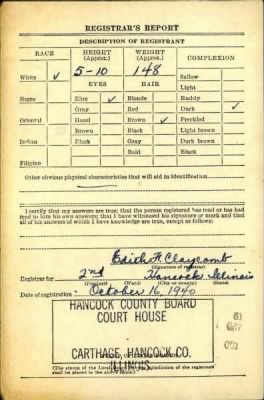 REGISTRAR'S REPORT
DESCRIPTION OF REGISTRANT
RACE HEIGHT (Approx.) WEIGHT (Approx.) COMPLEXION
White ✓ 5-10 148 Sallow
EYES HAIR Light
Negro Blue ✓ Blonde Ruddy
Gray Red Dark ✓
Oriental Hazel Brown ✓ Freckled
Brown Black Light brown
Indian Black Gray Dark brown
Bald Black
Filipino
Other obvious physical characteristics that will aid in identification
I certify that my answers are true; that the person registered has read or has had
read to him his own answers; that I have witnessed his signature or mark and that
all of his answers of which I have knowledge are true, except as follows:
Edith H Claycomb
(Signature of registrar)
Registrar for 2nd Hancock Illinois
(Precinct) (Ward) (City or county) (State)
Date of registration October 16, 1940
HANCOCK COUNTY BOARD
COURT HOUSE
CARTHAGE HANCOCK CO.
ILLINOIS
(The stamp of the Local Board having jurisdiction of the registrant
shall be placed in the above space.)